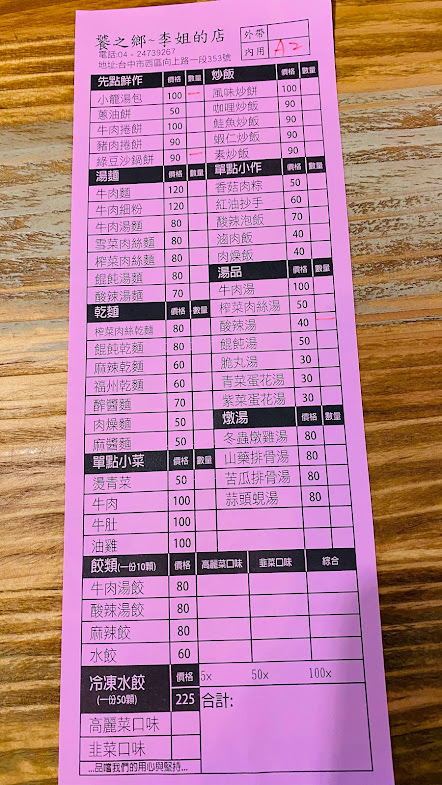 饕之鄉~李姐的店
電話:04-24739267
地址:台中市西區向上路一段353號
外帶
內用 A2
先點鮮作 價格 數量
小籠湯包 100
蔥油餅 50
牛肉捲餅 100
豬肉捲餅 90
綠豆沙鍋餅 90
湯麵 價格 數量
牛肉麵 120
牛肉細粉 120
牛肉湯麵 80
雪菜肉絲麵 80
榨菜肉絲麵 80
餛飩湯麵 80
酸辣湯麵 70
乾麵 價格 數量
榨菜肉絲乾麵 80
餛飩乾麵 80
麻辣乾麵 60
福州乾麵 60
酢醬麵 70
肉燥麵 50
麻醬麵 50
單點小菜 價格 數量
燙青菜 50
牛肉 100
牛肚 100
油雞 100
炒飯 價格 數量
風味炒餅 100
咖哩炒飯 90
鮭魚炒飯 90
蝦仁炒飯 90
素炒飯 90
單點小作 價格 數量
香菇肉粽 50
紅油抄手 60
酸辣泡飯 70
滷肉飯 40
肉燥飯 40
湯品 價格 數量
牛肉湯 100
榨菜肉絲湯 50
酸辣湯 40
餛飩湯 50
脆丸湯 30
青菜蛋花湯 30
紫菜蛋花湯 30
燉湯 價格 數量
冬蟲燉雞湯 80
山藥排骨湯 80
苦瓜排骨湯 80
蒜頭蜆湯 80
餃類(一份10顆) 價格 高麗菜口味 韭菜口味 綜合
牛肉湯餃 80
酸辣湯餃 80
麻辣餃 80
水餃 60
冷凍水餃 價格
(一份50顆) 225
高麗菜口味
韭菜口味
5x 50x 100x
合計:
...品嚐我們的用心與堅持...